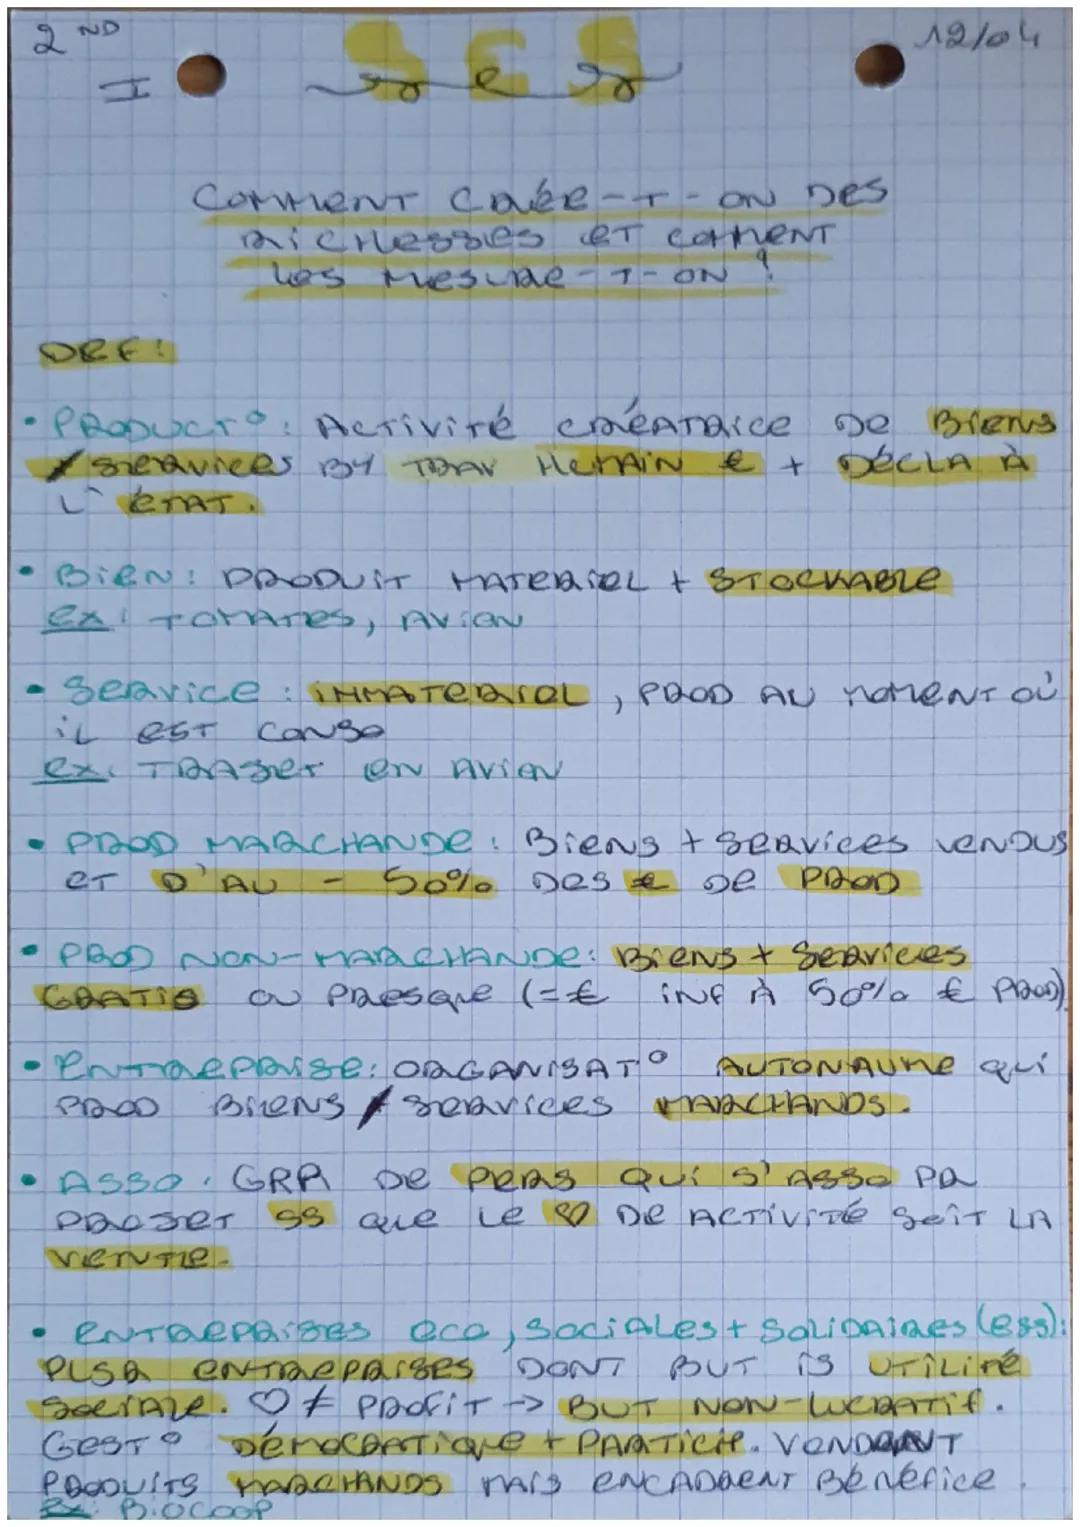 2 ND
12/04
I
SES
COMMENT CRÉE-T-ON DES
RICHESSES ET COMMENT
LES MESURE-T-ON ?
DEF:
• PRODUCT°: ACTIVITÉ CRÉATRICE DE BIENS
/ SERVICES BY TRAV HUMAIN € + DÉCLA À
L'ÉTAT.
• BIEN: PRODUIT MATERIEL + STOCKABLE
ex: TOMATES, AVION
• SERVICE: IMMATERIEL, PROD AU MOMENT OÙ
IL EST CONSO
ex: TRAJET EN AVION
• PROD MARCHANDE: BIENS + SERVICES VENDUS
ET D'AU - 50% DES € DE PROD
• PROD NON-MARCHANDE: BIENS + SERVICES
GRATIS OU PRESQUE (=€ INF À 50% € PROD)
• ENTREPRISE: ORGANISAT° AUTONAUME QUI
PROD BIENS / SERVICES MARCHANDS.
• ASSO: GRP DE PERS QUI S'ASSO PR
PROJET SS QUE LE ♡ DE ACTIVITÉ SOIT LA
VENTE.
• ENTREPRISES ECO, SOCIALES + SOLIDAIRES (ESS):
PLSR ENTREPRISES DONT BUT IS UTILITÉ
SOCIALE. ♡ ≠ PROFIT → BUT NON-LUCRATIF.
GEST° DÉMOCRATIQUE + PARTICIP. VENDENT
PRODUITS MARCHANDS MAIS ENCADRENT BÉNÉFICE.
ex: BIOCOOP